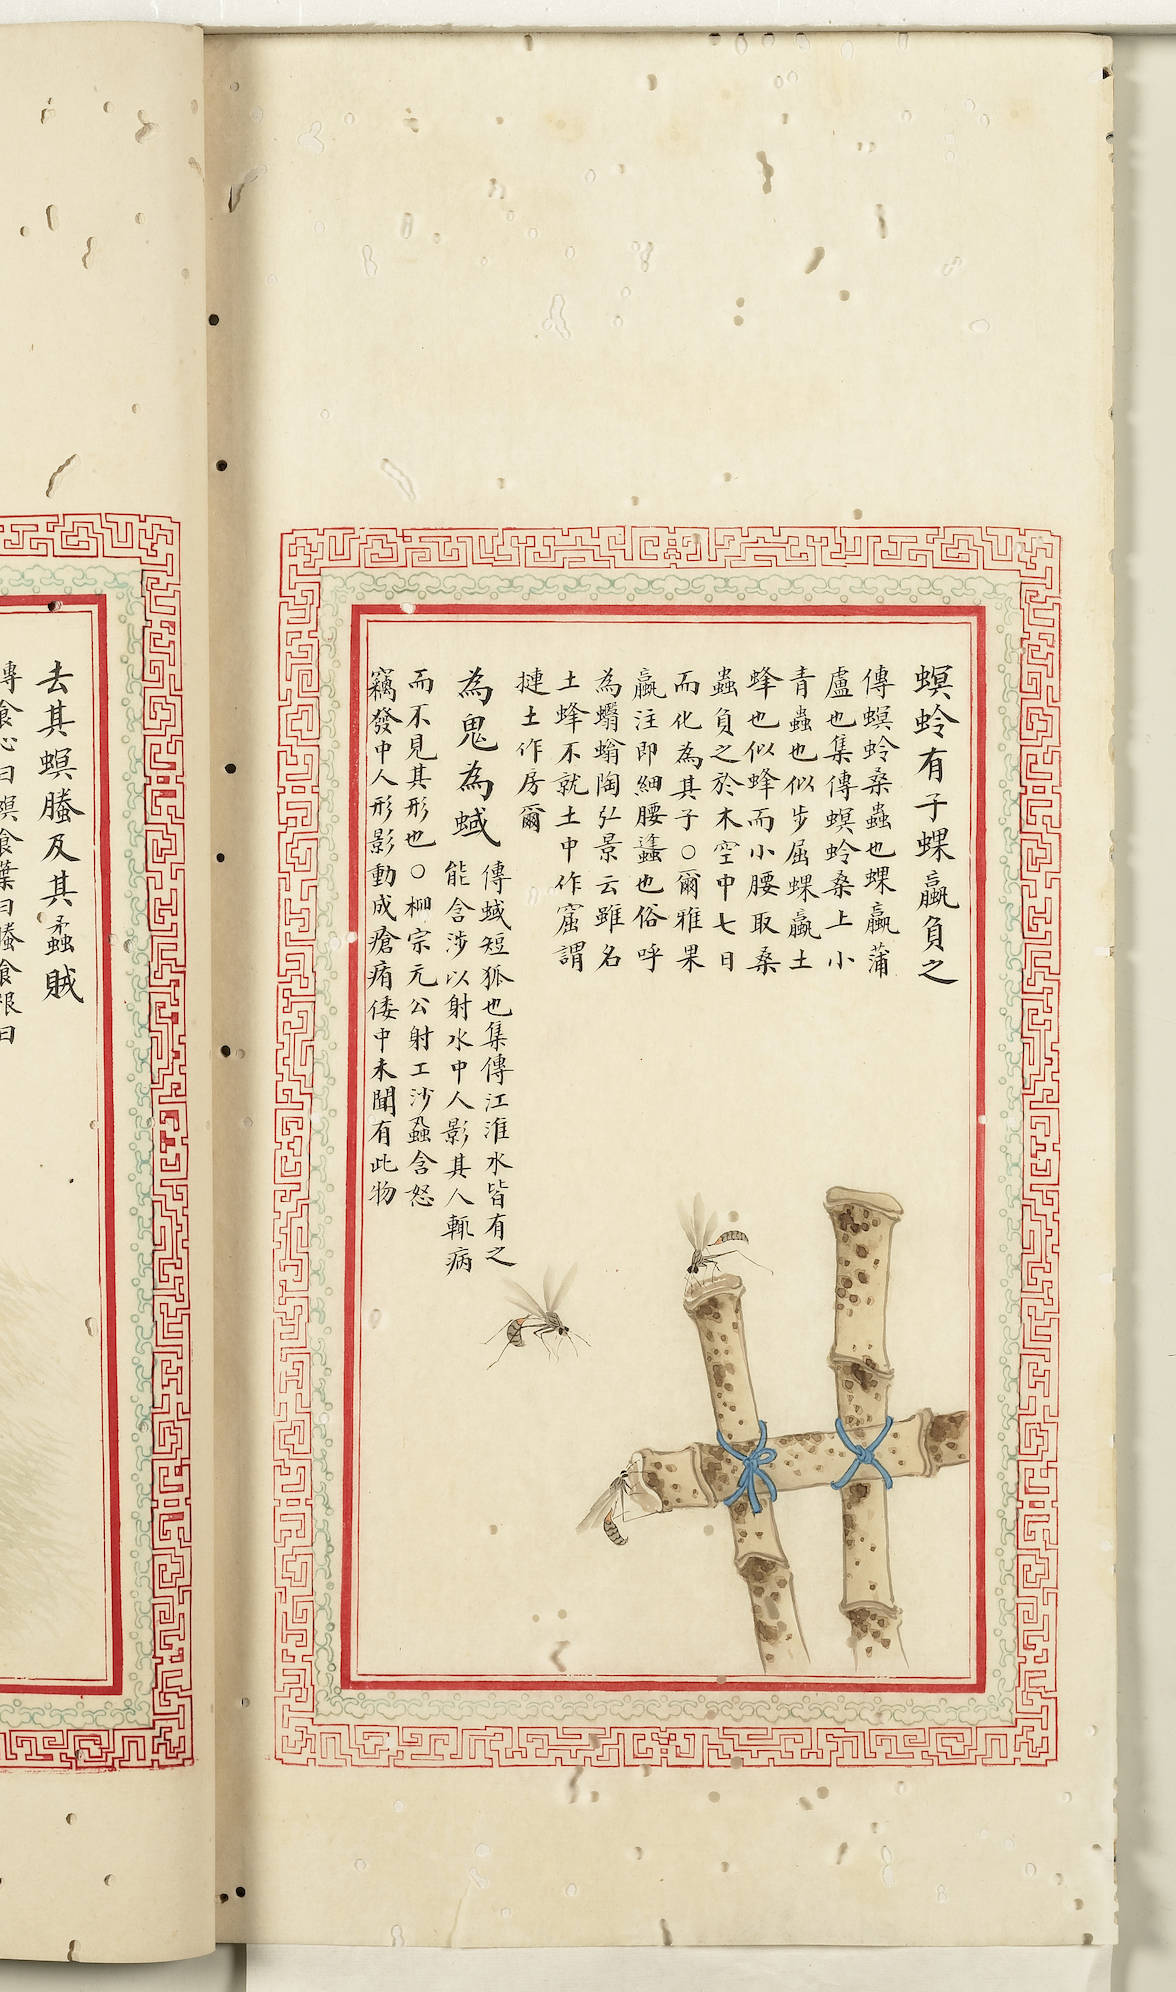 螟蛉有子蜾蠃負之
傳螟蛉桑蟲也蜾蠃蒲
盧也集傳螟蛉桑上小
青蟲也似步屈蜾蠃土
蜂也似蜂而小腰取桑
蟲負之於木空中七日
而化為其子○爾雅果
蠃注即細腰蠭也俗呼
為蠮螉陶弘景云雖名
土蜂不就土中作窟謂
摙土作房爾
為鬼為蜮
傳蜮短狐也集傳江淮水皆有之
能含涉以射水中人影其人輒病
而不見其形也○柳宗元公射工沙蝨含怒
竊發中人形影動成瘡痏倭中未聞有此物
去其螟螣及其蟊賊
傳食心曰螟食葉曰螣食根曰